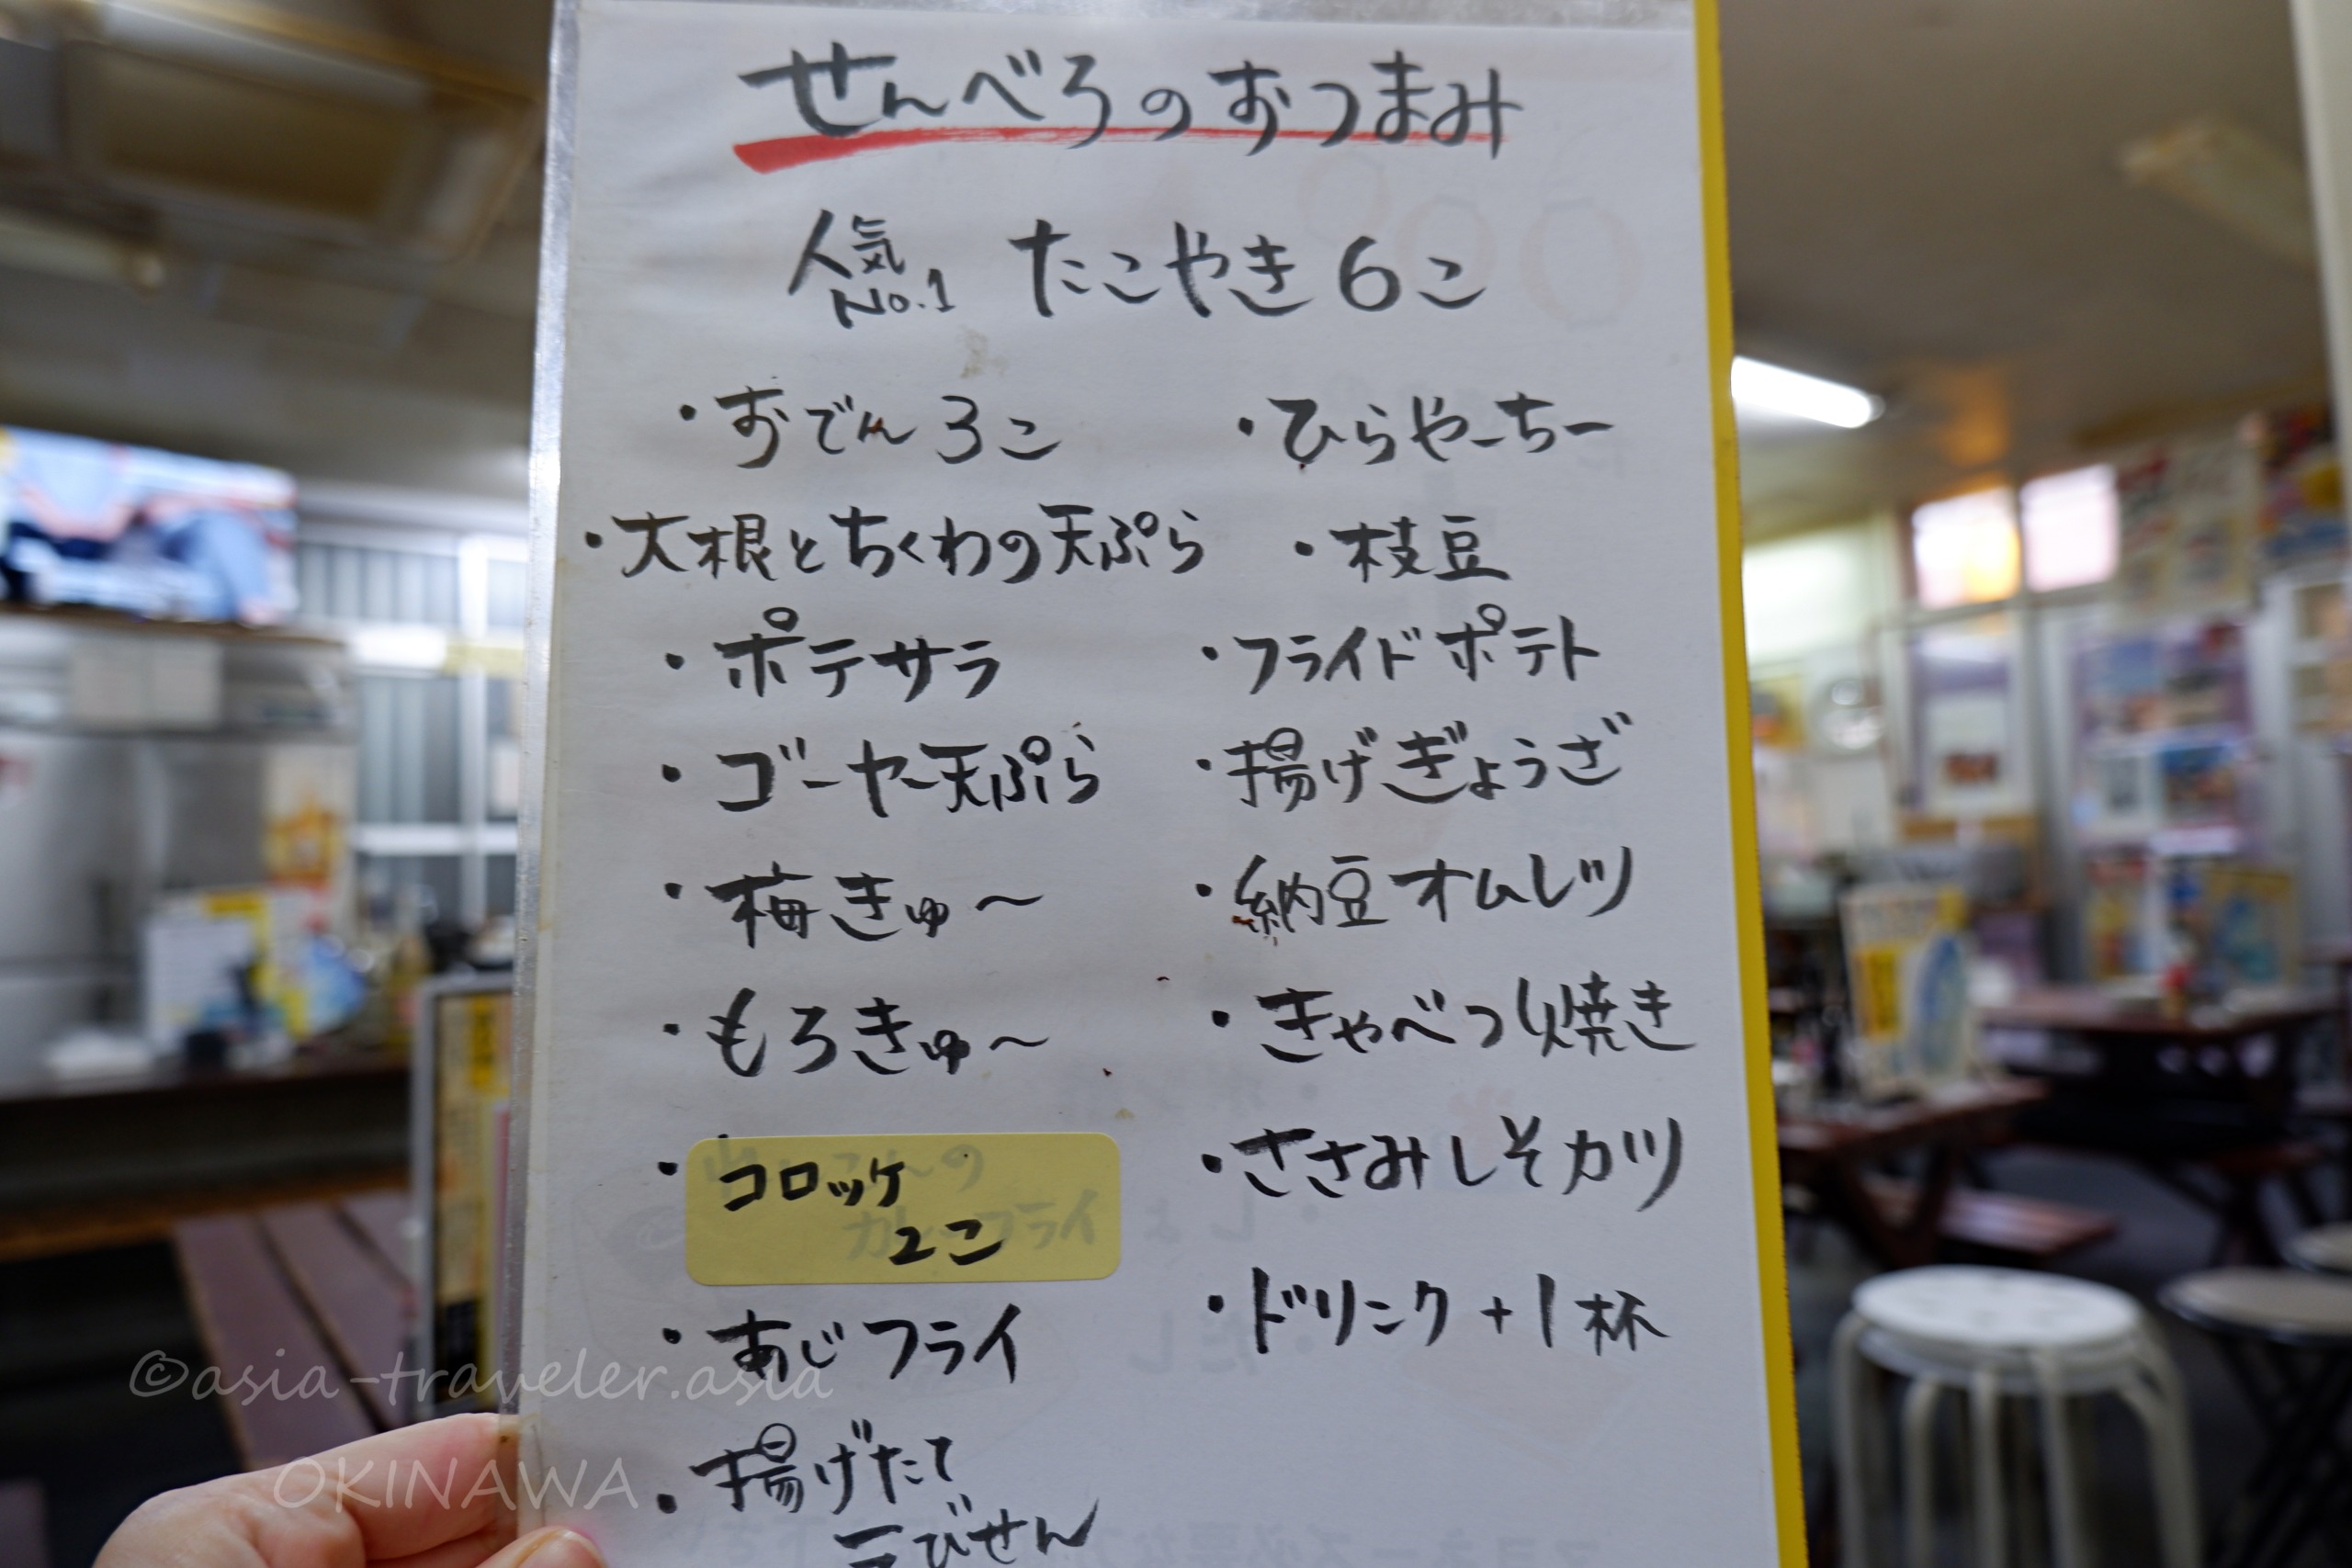 せんべろのおつまみ
人気No.1 たこやき6こ
・おでん3こ
・大根とちくわの天ぷら
・ポテサラ
・ゴーヤー天ぷら
・梅きゅ〜
・もろきゅ〜
・コロッケ
2こ
・あじフライ
・揚げたて
えびせん
・ひらやーちー
・枝豆
・フライドポテト
・揚げぎょうざ
・納豆オムレツ
・きゃべつ焼き
・ささみしそカツ
・ドリンク+1杯
©asia-traveler.asia
OKINAWA